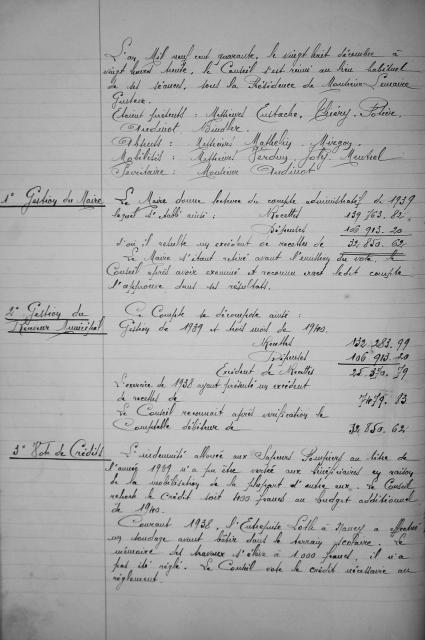 L'an Mil neuf cent quarante, le vingt huit décembre à
vingt heures trente, le Conseil s'est réuni au lieu habituel
de ses séances, sous la Présidence de Monsieur Lemaire
Gustave.
Etaient présents : Messieurs Eustache, Thiéry, Poirine,
Audinot
Absents : Messieurs Mathelin, Mirgon,
Mobilisés : Messieurs Jolly,
Secrétaire : Monsieur Audinot
1° Gestion du Maire
Le Maire donne lecture du compte administratif de 1939
lequel s'établi ainsi : Recettes 139 763. 82
Dépenses 106 913. 20
d'où il résulte un excédent de recettes de 32 850. 62
Le Maire s'étant retiré avant l'émission du vote, le
Conseil après avoir examiné et reconnu exact ledit compte
l'approuve dans ses résultats.
2° Gestion du
Receveur Municipal
Ce Compte se décompose ainsi :
Gestion de 1939 et trois mois de 1940.
Recettes 132 283. 99
Dépenses 106 913. 20
Excédent de Recettes 25 370. 79
L'exercice de 1938 ayant présenté un excédent
de recettes de 7479. 83
Le Conseil reconnait après vérification le
Comptable débiteur de 32 850. 62
3° Vote de Crédits
L'indemnité allouée aux Sapeurs Pompiers au titre de
l'année 1939 n'a pu être versée aux bénéficiaires en raison
de la mobilisation de la plupart d'entre eux. Le Conseil
le crédit soit 400 francs au budget additionnel
de 1940.
Courant 1938, l'Entreprise Loth à Nancy a effectué
un sondage avant bâtir dans le terrain scolaire. Le
mémoire des travaux s'élève à 1.000 francs, il n'a
pas été réglé. Le Conseil vote le crédit nécessaire au
règlement.